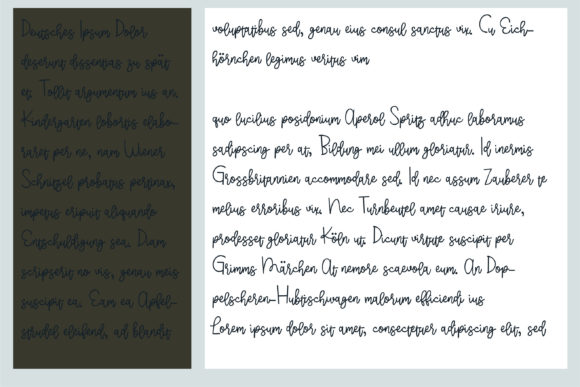 Deutsches Ipsum Dolor
deserunt dissentias zu spät
et. Tollit argumentum ius an.
Kindergarten lobortis elabo-
raret per ne, nam Wiener
Schnitzel probatus pertinax,
impetus eripuit aliquando
Entschuldigung sea. Diam
scripserit no vis, genau meis
suscipit ea. Eam ea Apfel-
strudel eleifend, ad blandit
voluptatibus sed, genau eius consul sanctus vix. Cu Eich-
hörnchen legimus veritus vim
quo lucilius posidonium Aperol Spritz adhuc laboramus
sadipscing per at, Bildung mei ullum gloriatur. Id inermis
Grossbritannien accommodare sed. Id nec assum Zauberer te
melius erroribus vix. Nec Turnbeutel amet causae iriure,
prodesset gloriatur Köln ut. Dicunt virtute suscipit per
Grimms Märchen At nemore scaevola eum. An Dop-
pelscheren-Hubtischwagen malorum efficiendi ius
Lorem ipsum dolor sit amet, consectetuer adipiscing elit, sed